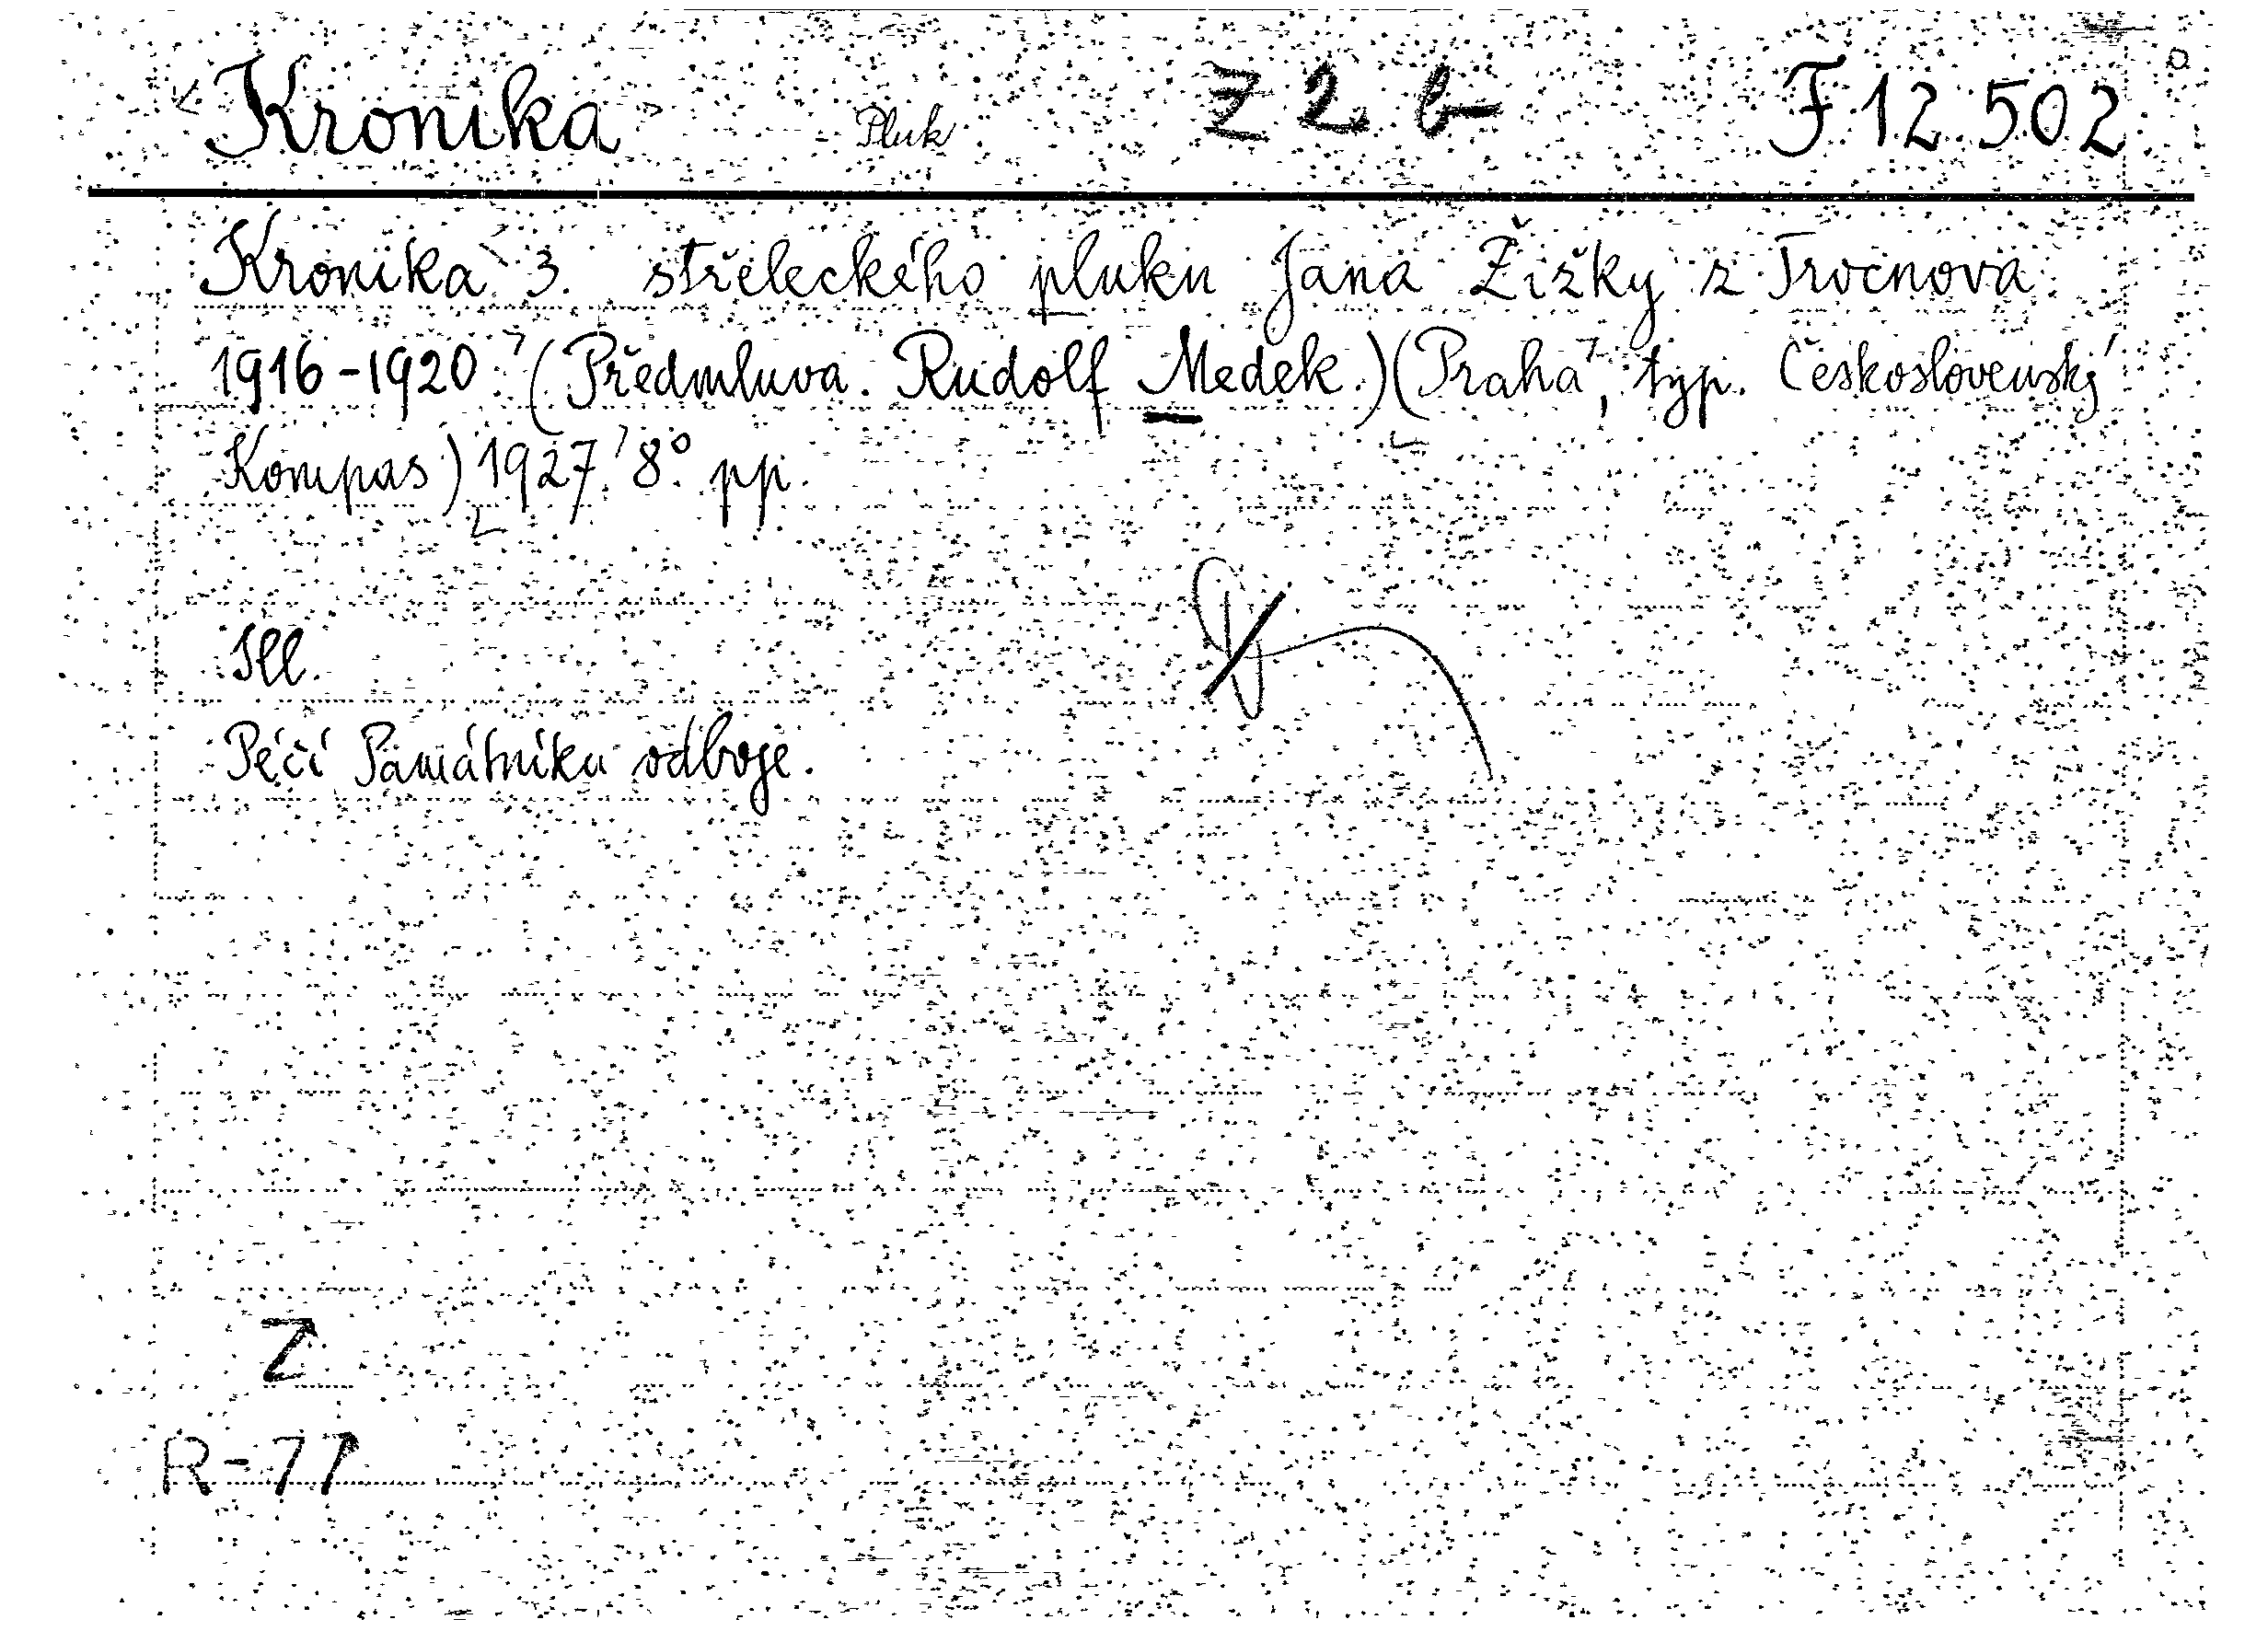 Kronika Pluk Z 2 b F 12.502
Kronika 3. střeleckého pluku Jana Žižky z Trocnova
1916-1920. (Předmluva. Rudolf Medek.) (Praha, typ. Československý
Kompas) 1927. 8° pp.
Ill.
Péčí Památníku odboje.
Z
R-77